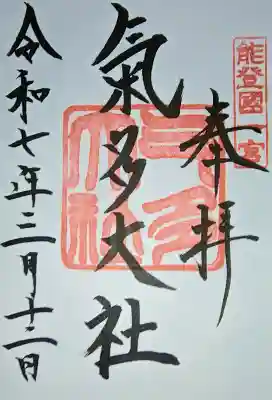 能登國一宮
奉拝
氣多大社
令和七年三月十二日